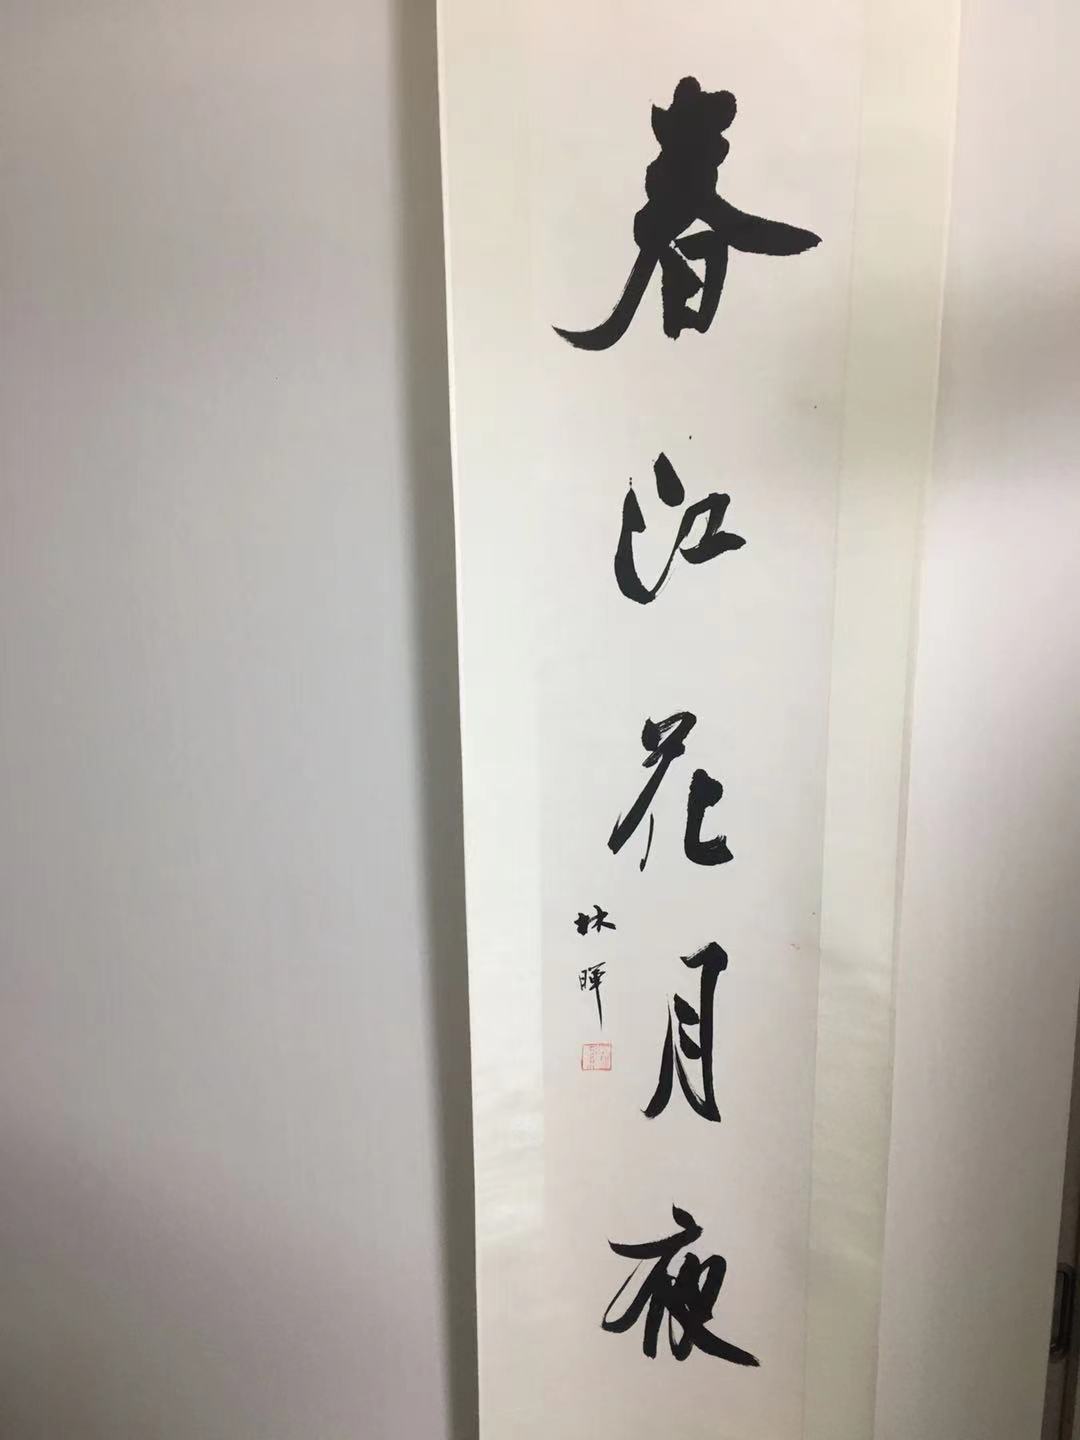 春江花月夜
林暉